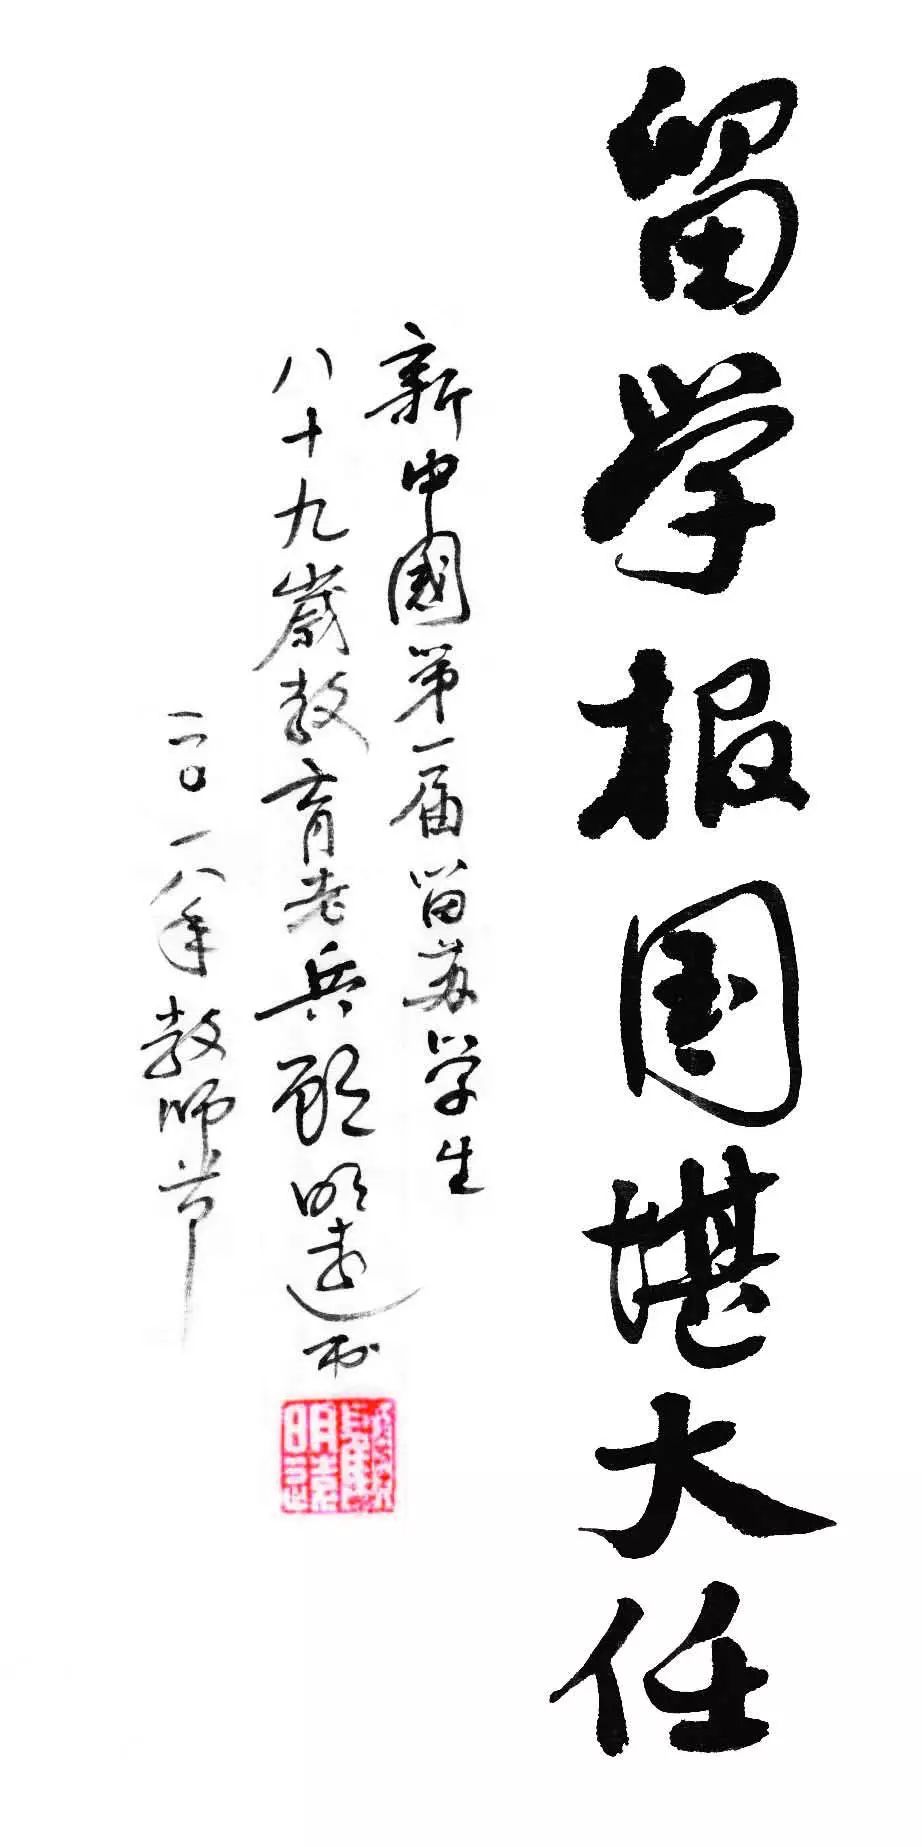 留学报国堪大任
新中國第一届留苏学生
八十九歲教育老兵顾明遠书
二〇一八年教师节
顧明遠